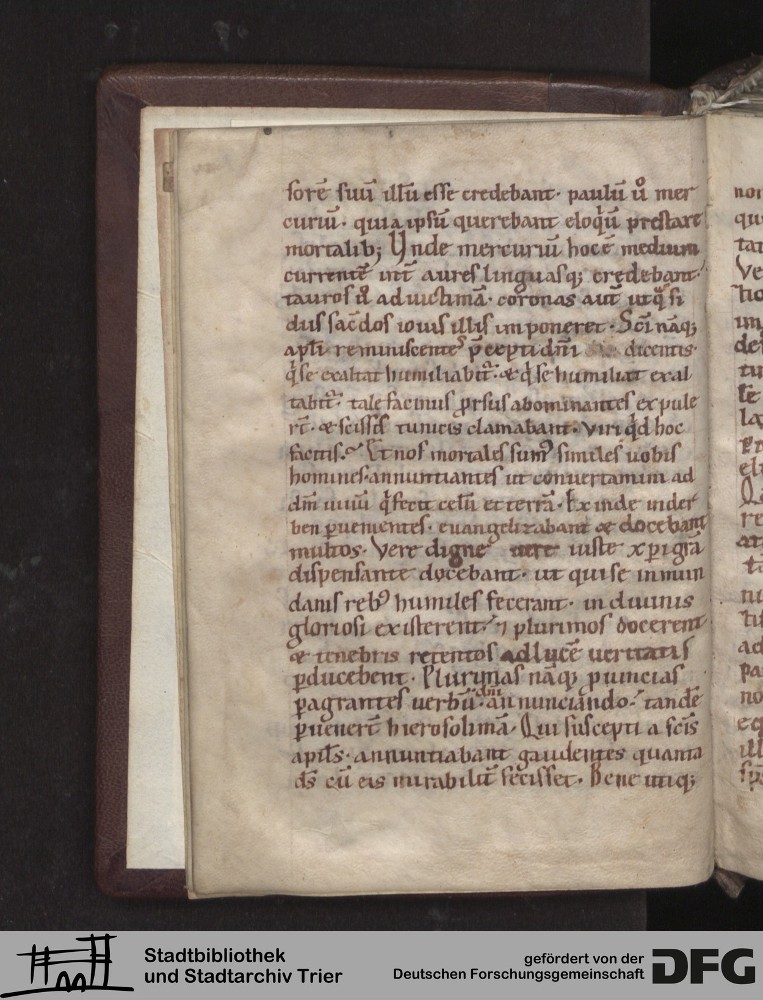 sorē suū illū esse credebant. paulū u̇o mer
curiū. quia ipsū querebant eloq̇ū prestare
mortalib; Unde mercuriū hocē medium
currentē int̄ aures linguasq; credebant.
tauros u̇o ad uictimā. coronas aut̄ utq̇ si
dus sac̄dos iouis illis imponeret. Sc̄i nāq;
apl̄i reminiscentes p̄cepti dn̄i dicentis.
q̇ se exaltat humiliabit᷑. & q̇ se humiliat exal
tabit᷑. tale facinus ꝓrsus abominantes expule
rt̄. & scissis tunicis clamabant. Viri q̇d hoc
facitis. Et nos mortales sumꝰ similes uobis
homines. annuntiantes ut conuertamini ad
dm̄ uiuū q̇ fecit celū et terrā. Exinde inder
ben ꝑuenientes. euangelizabant & docebant
multos. Vere digne uere iuste xp̄i grā
dispensante docebant. ut qui se in mun
danis rebꝰ humiles fecerant. in diuinis
gloriosi existerent. ⁊ plurimos docerent
& tenebris retentos ad lucē ueritatis
ꝑducebent. Plurimas nāq; ꝓuincias
ꝑagrantes uerbū dn̄i annunciando. tandē
ꝑuenert̄ hierosolimā. Qui suscepti a sc̄is
apl̄is. annuntiabant gaudentes quanta
ds̄ cū eis mirabilit̄ fecisset. Bene utiq;
Stadtbibliothek
und Stadtarchiv Trier
gefördert von der
Deutschen Forschungsgemeinschaft
DFG